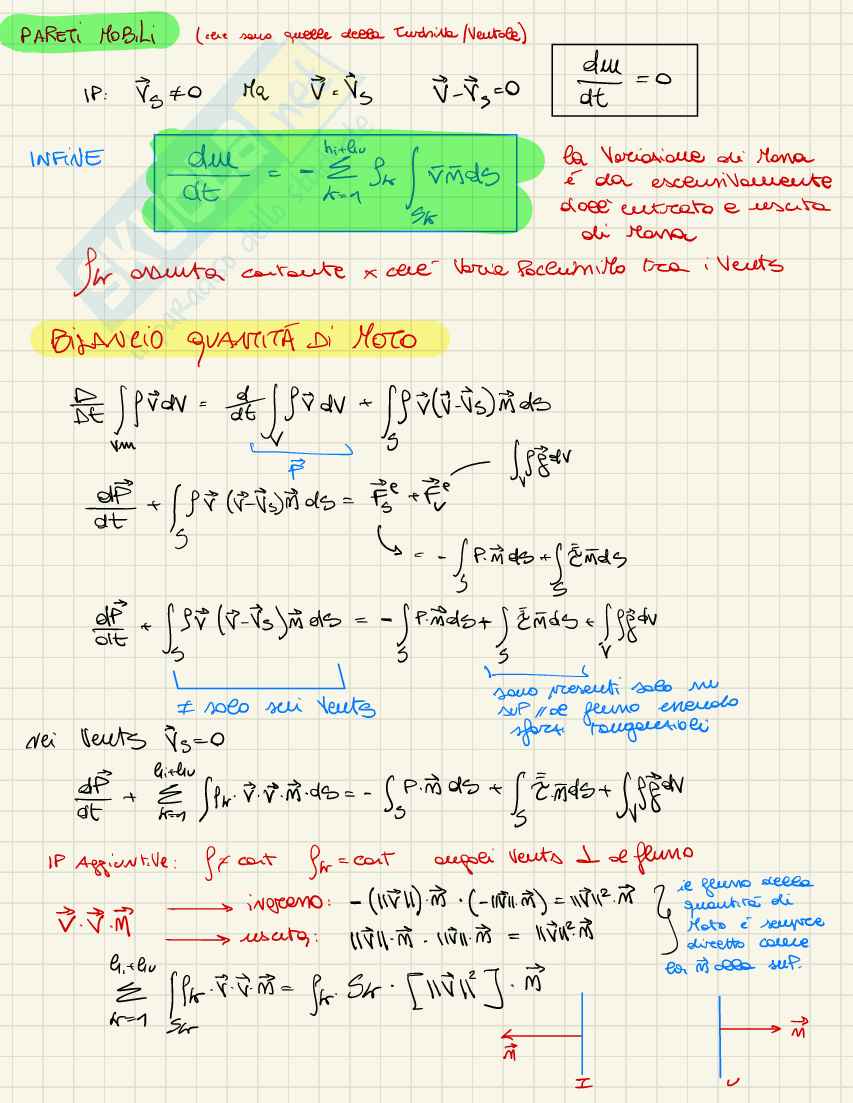 PARETI MOBILI (che sono quelle della Turbina/Ventole)
IP: V⃗s ≠ 0 Ma V⃗ = V⃗s V⃗ - V⃗s = 0 dm/dt = 0
INFINE dm/dt = - Σ_{k=1}^{hi+hu} ρk ∫_{Sk} v̄ n̄ ds
la Variazione di Massa
è da esclusivamente
dall'entrata e uscita
di Massa
ρk assunta costante x chè Varia pochissimo tra i Vents
BILANCIO QUANTITÀ DI MOTO
D/Dt ∫_{Vm} ρ v⃗ dV = d/dt ∫_V ρ v⃗ dV + ∫_S ρ v⃗ (v⃗ - v⃗s) n⃗ ds
P⃗
∫_V ρ g⃗ dV
dP⃗/dt + ∫_S ρ v⃗ (v⃗ - v⃗s) n⃗ ds = F⃗s^e + F⃗v^e
= - ∫_S P · n⃗ ds + ∫_S τ̿ n̄ ds
dP⃗/dt + ∫_S ρ v⃗ (v⃗ - v⃗s) n⃗ ds = - ∫_S P · n⃗ ds + ∫_S τ̿ n̄ ds + ∫_V ρ g⃗ dV
≠ solo sui Vents
sono presenti solo su
sup // al flusso essendo
sforzi tangenziali
nei Vents V⃗s = 0
dP⃗/dt + Σ_{k=1}^{hi+hu} ∫ ρk · v⃗ · v⃗ · n⃗ · ds = - ∫_S P · n⃗ ds + ∫_S τ̿ · n̄ ds + ∫_V ρ g⃗ dV
IP Aggiuntive: ρ ≠ cost ρk = cost angoli Vents ⊥ al flusso
V⃗ · V⃗ · n⃗
ingresso: -(||v⃗||) · n⃗ · (-||v⃗|| · n⃗) = ||v⃗||² · n⃗
uscita: ||v⃗|| · n⃗ · ||v⃗|| · n⃗ = ||v⃗||² · n⃗
il flusso della
quantità di
Moto è sempre
diretto come
la n⃗ alla sup.
Σ_{k=1}^{hi+hu} ∫_{Sk} ρk · v⃗ · v⃗ · n⃗ = ρk · Sk · [||v⃗||²] · n⃗
n⃗ I
n⃗ U